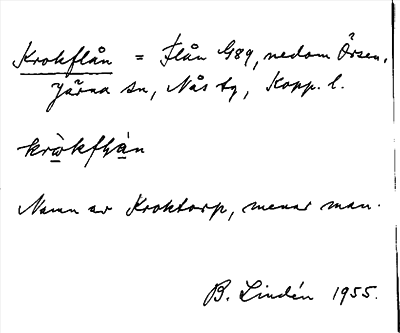 Krokflån = Flån 489, nedom Örsen,
Järna sn, Nås tg, Kopp. l.
kròkflyán
Namn av Kroktorp, menar man.
B. Lindén 1955.